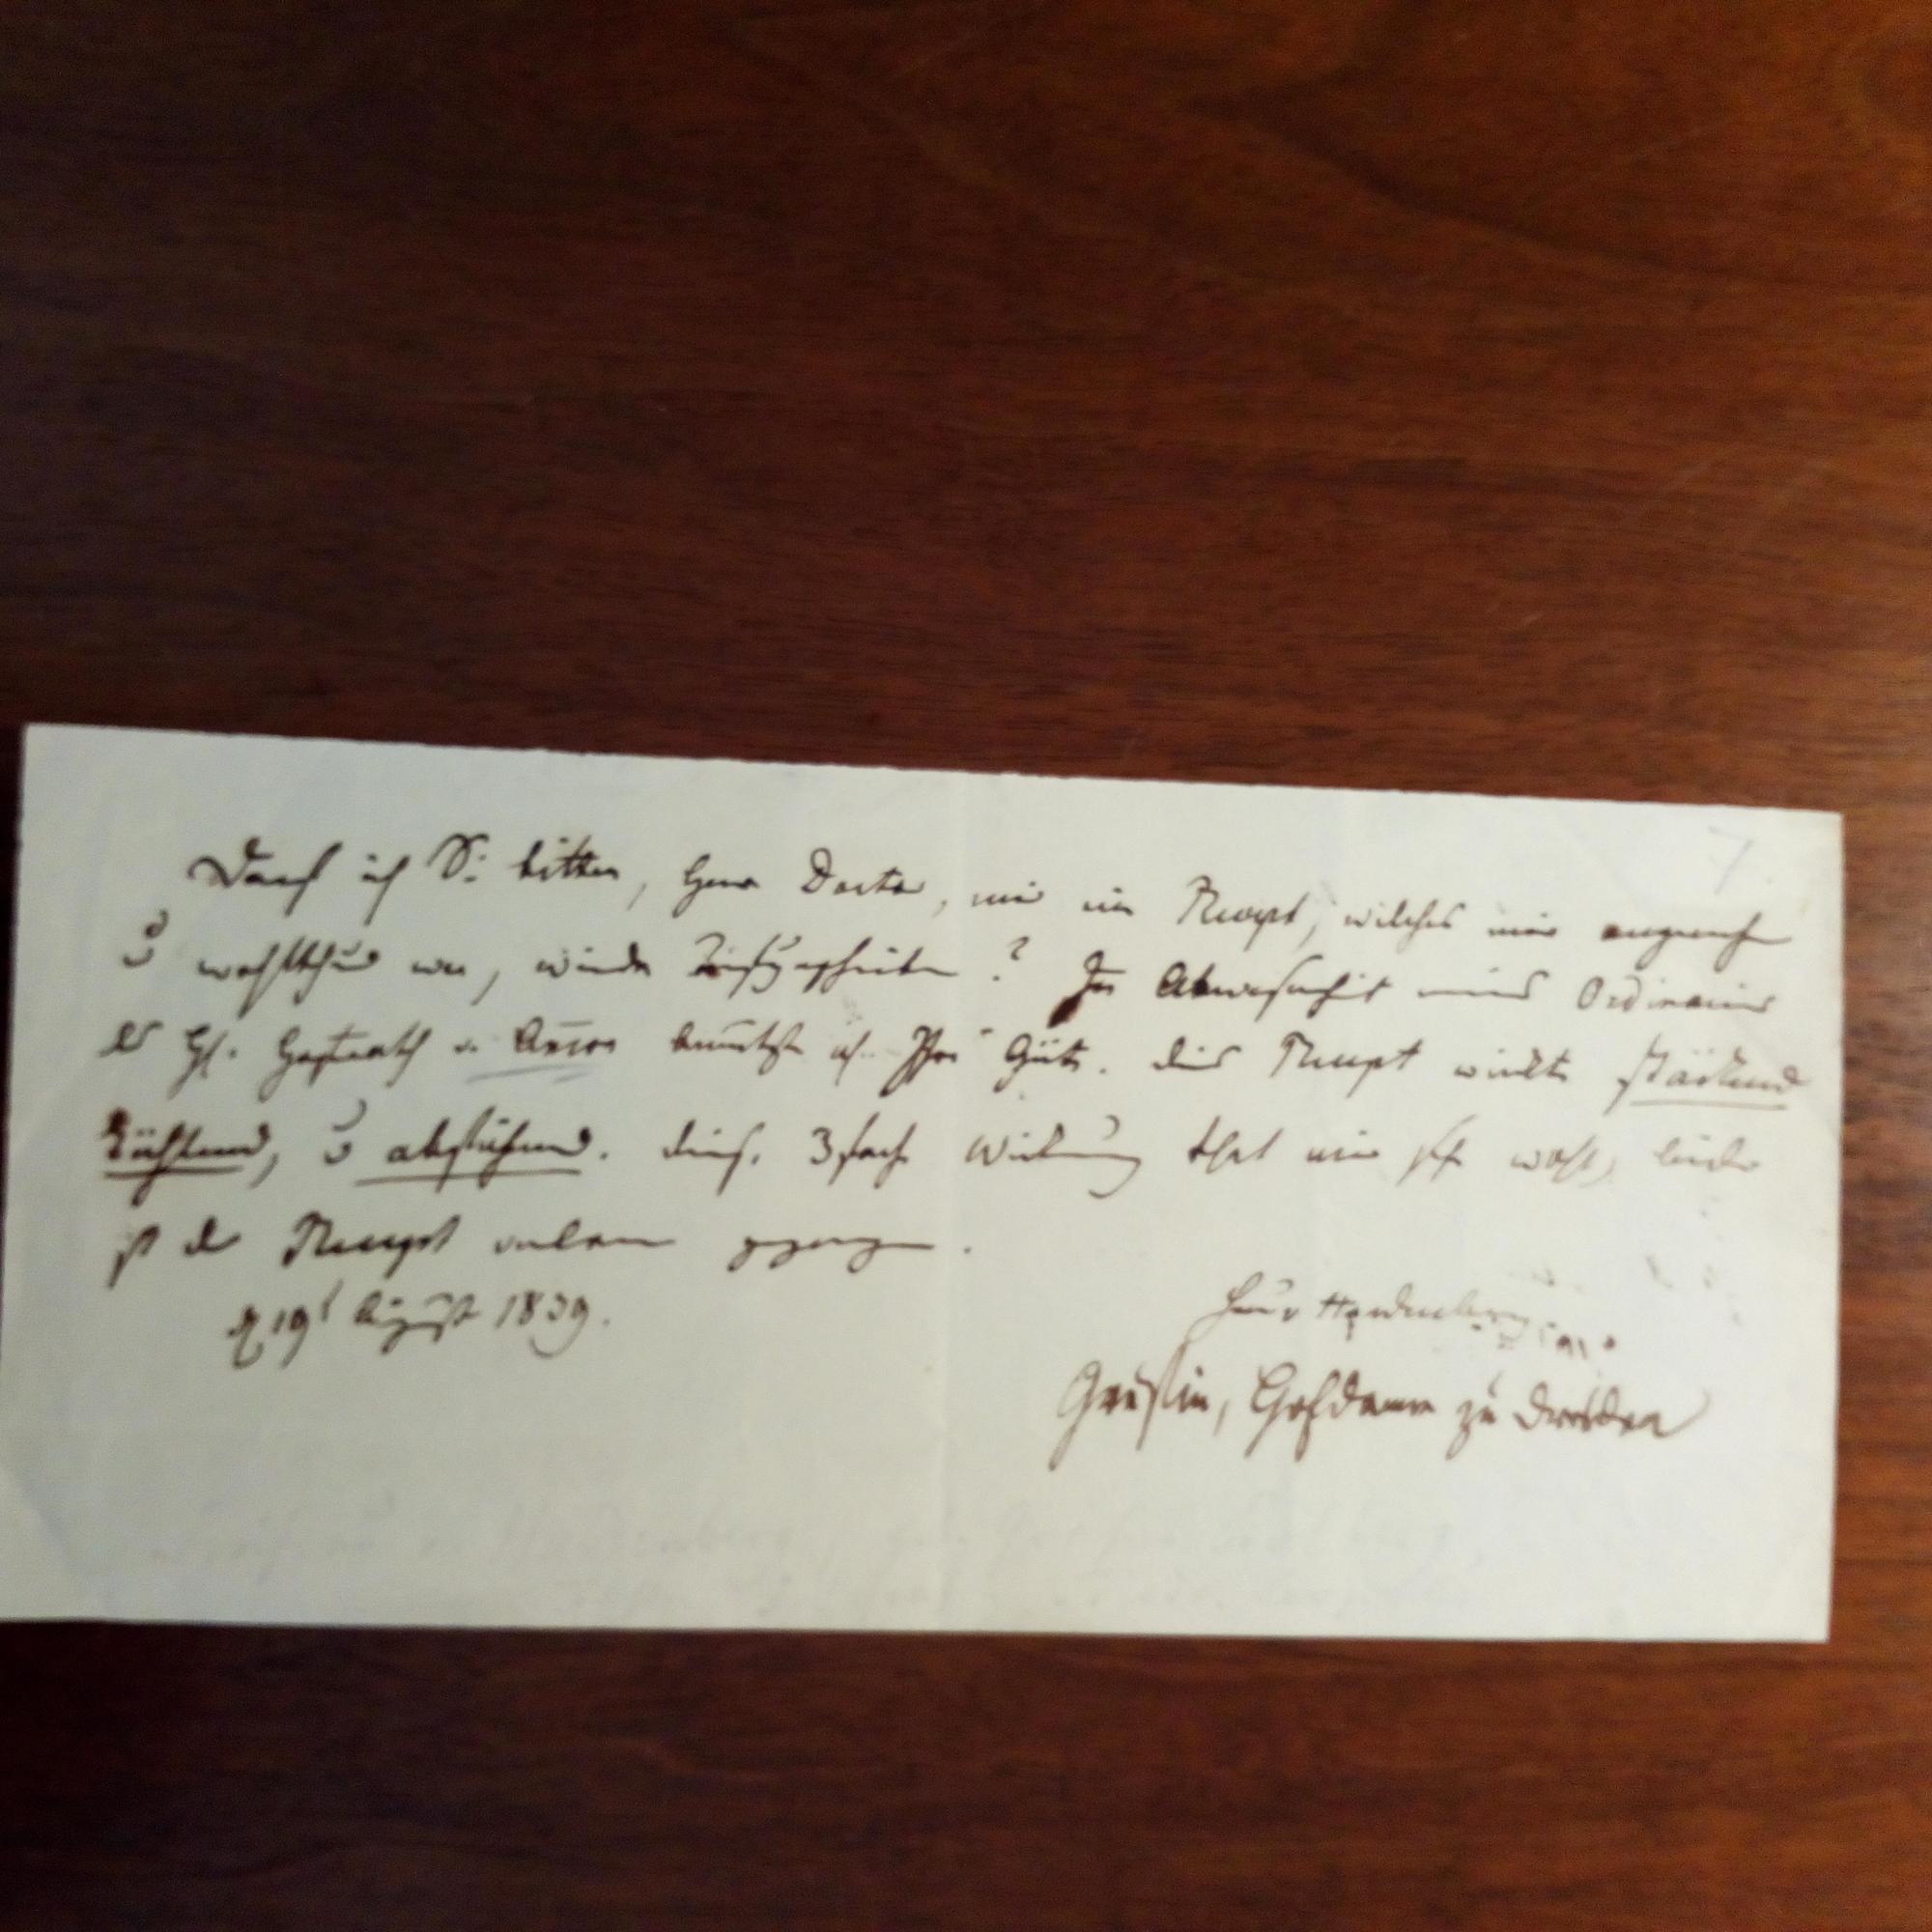 Darf ich Sie bitten, Herr Doctor, mir ein Recept, welches mir angenehm
u wohlthuend war, wieder zu verschreiben? In Abwesenheit meines Ordinarius
des H. Hofrath v. benutze ich Ihre Güte. dies Recept wirkte stärkend
kühlend, u abführend. diese 3fache Wirkung that mir sehr wohl, leider
ist das Recept verloren gegangen.
d 19t August 1839.
Hardenberg
Gräfin, Hofdame zu Dresden